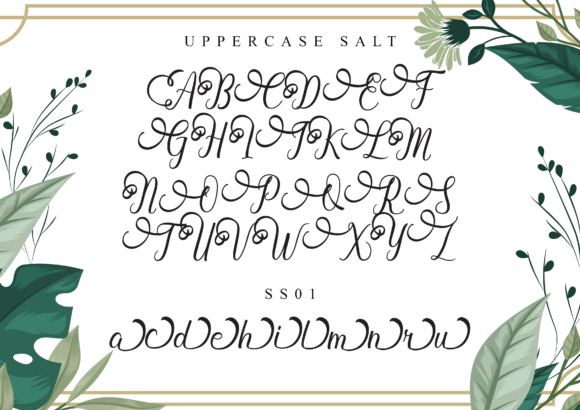 UPPERCASE SALT
ABCDEF
GHIJKLM
NOPQRS
TUVWXYZ
SS01
adehilmnru